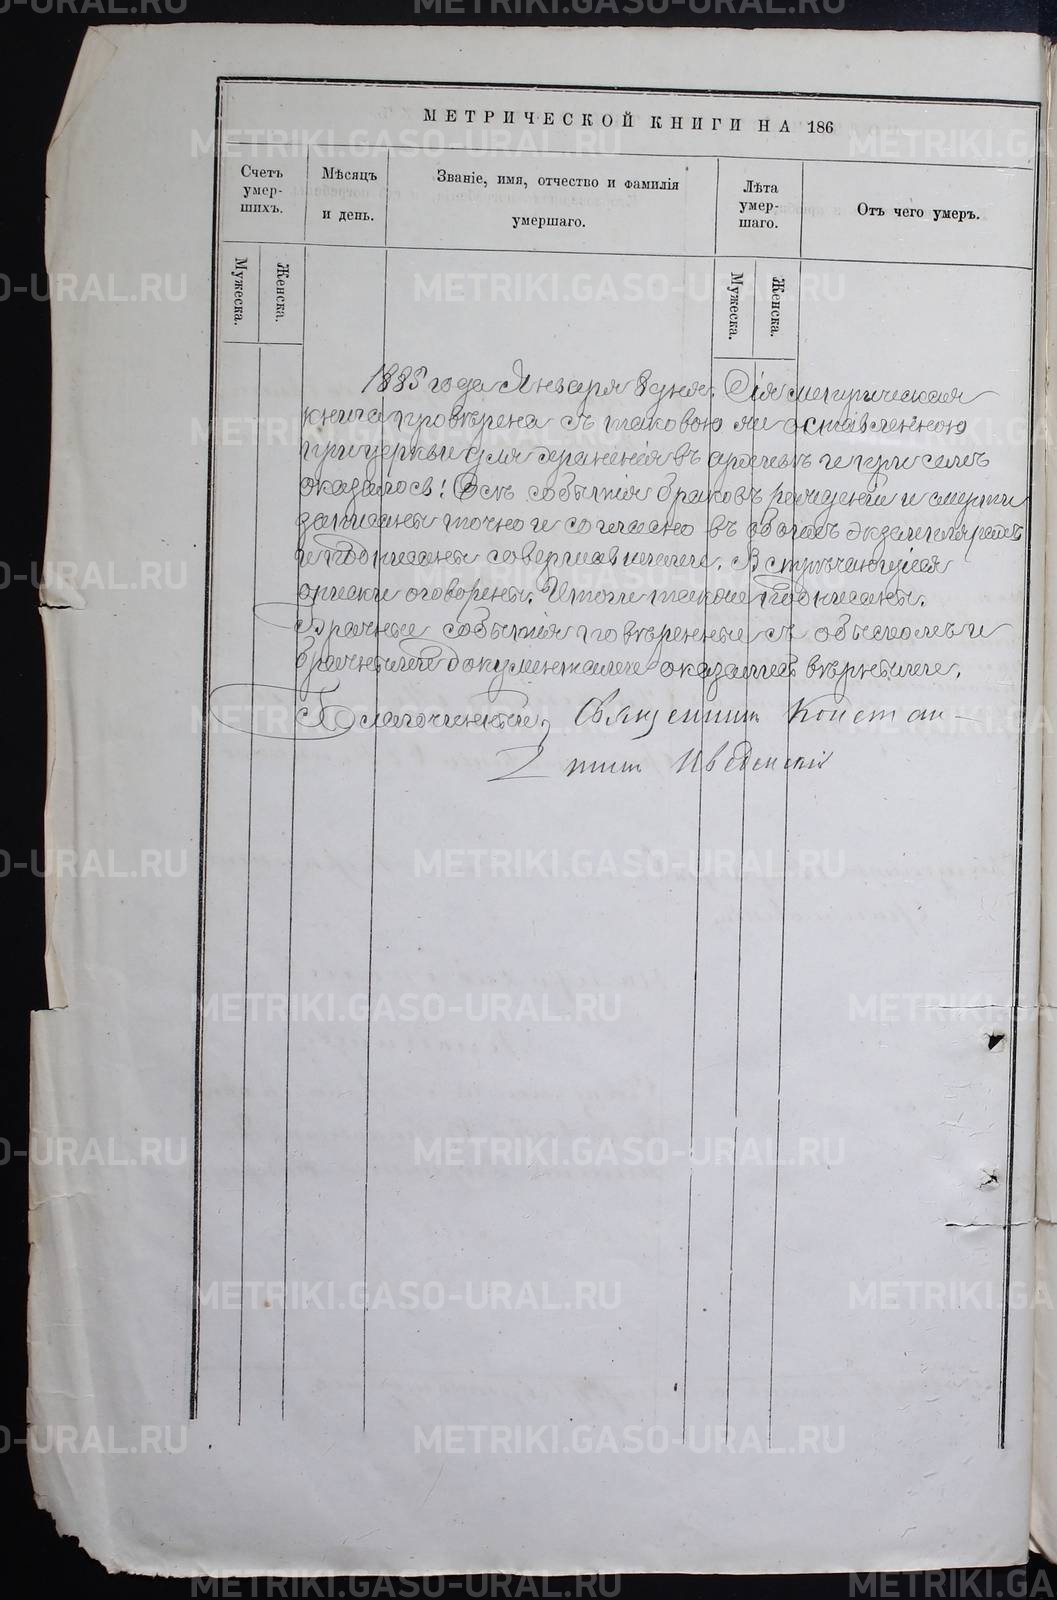 МЕТРИЧЕСКОЙ КНИГИ НА 186
Счетъ умер-шихъ.
Мѣсяцъ и день.
Званіе, имя, отчество и фамилія умершаго.
Лѣта умер-шаго.
Отъ чего умеръ.
Мужеска.
Женска.
Мужеска.
Женска.
1885 года Января 8 дня. Сія метрическая
книга провѣрена съ таковою же оставленною
при церкви для храненія въ архивѣ и при семъ
оказалось: Всѣ событія браковъ рожденій и смерти
записаны точно и согласно въ обоихъ экземплярахъ
и подписаны совершавшими. Встрѣчающіяся
описки оговорены. Итоги также подписаны.
Брачные событія повѣренные съ обыскомъ и
брачными документами оказались вѣрными.
Благочинный, Священникъ Констан-
тинъ
METRIKI.GASO-URAL.RU